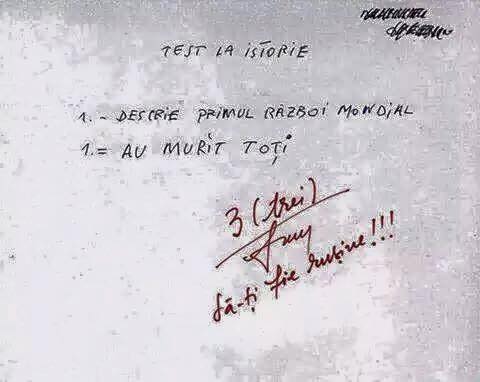 TEST LA ISTORIE
1. - DESCRIE PRIMUL RĂZBOI MONDIAL
1. = AU MURIT TOȚI
3 (trei)
Să-ți fie rușine!!!